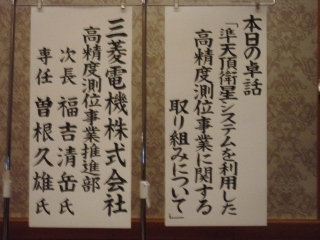 本日の卓話
「準天頂衛星システムを利用した
高精度測位事業に関する
取り組みについて」
三菱電機株式会社
高精度測位事業推進部
次長 福吉清岳氏
専任 曽根久雄氏